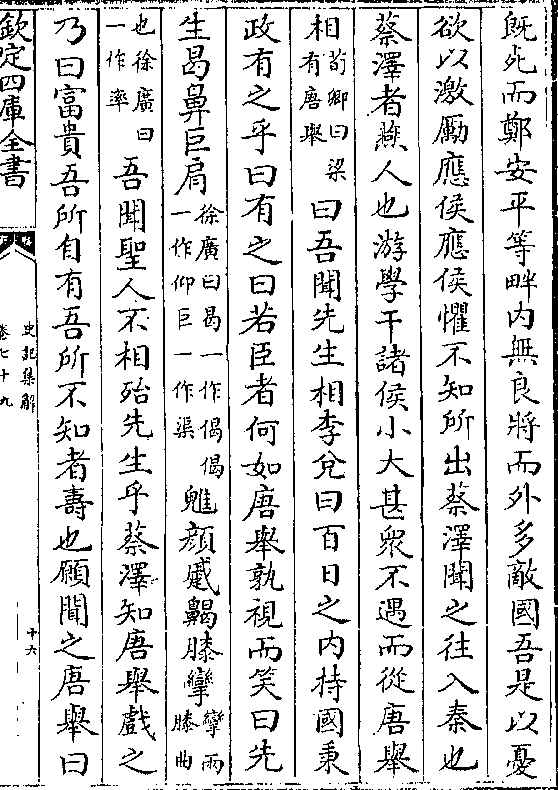 既死而鄭安平等畔内無良將而外多敵國吾是以憂
欲以激勵應侯應侯懼不知所出蔡澤聞之往入秦也
蔡澤者燕人也游學干諸侯小大甚衆不遇而從唐舉
相荀卿曰梁有唐舉曰吾聞先生相李兌曰百日之内持國秉
政有之乎曰有之曰若臣者何如唐舉孰視而笑曰先
生曷鼻巨肩徐廣曰曷一作偈偈一作仰巨一作渠魋顔蹙齃膝攣攣兩膝曲
也徐廣曰一作率吾聞聖人不相殆先生乎蔡澤知唐舉戲之
乃曰富貴吾所自有吾所不知者壽也願聞之唐舉曰
欽定四庫全書
史記集解
卷七十九
十六